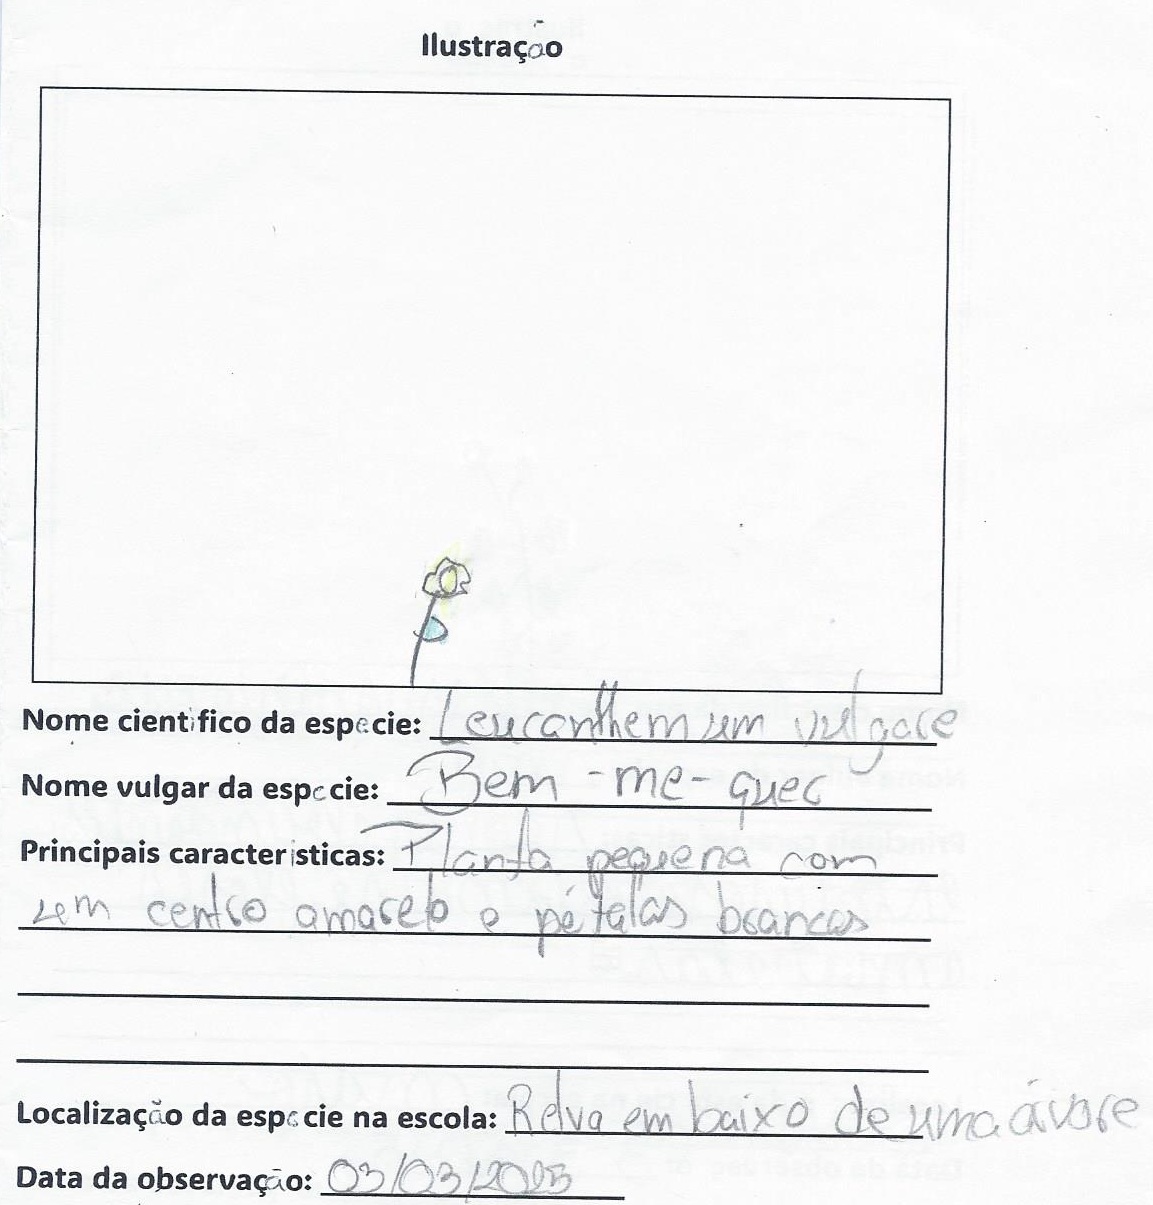 Ilustração
Nome científico da espécie: Leucanthemum vulgare
Nome vulgar da espécie: Bem-me-quer
Principais características: Planta pequena com
um centro amarelo e pétalas brancas
Localização da espécie na escola: Relva em baixo de uma ávore
Data da observação: 03/03/2025